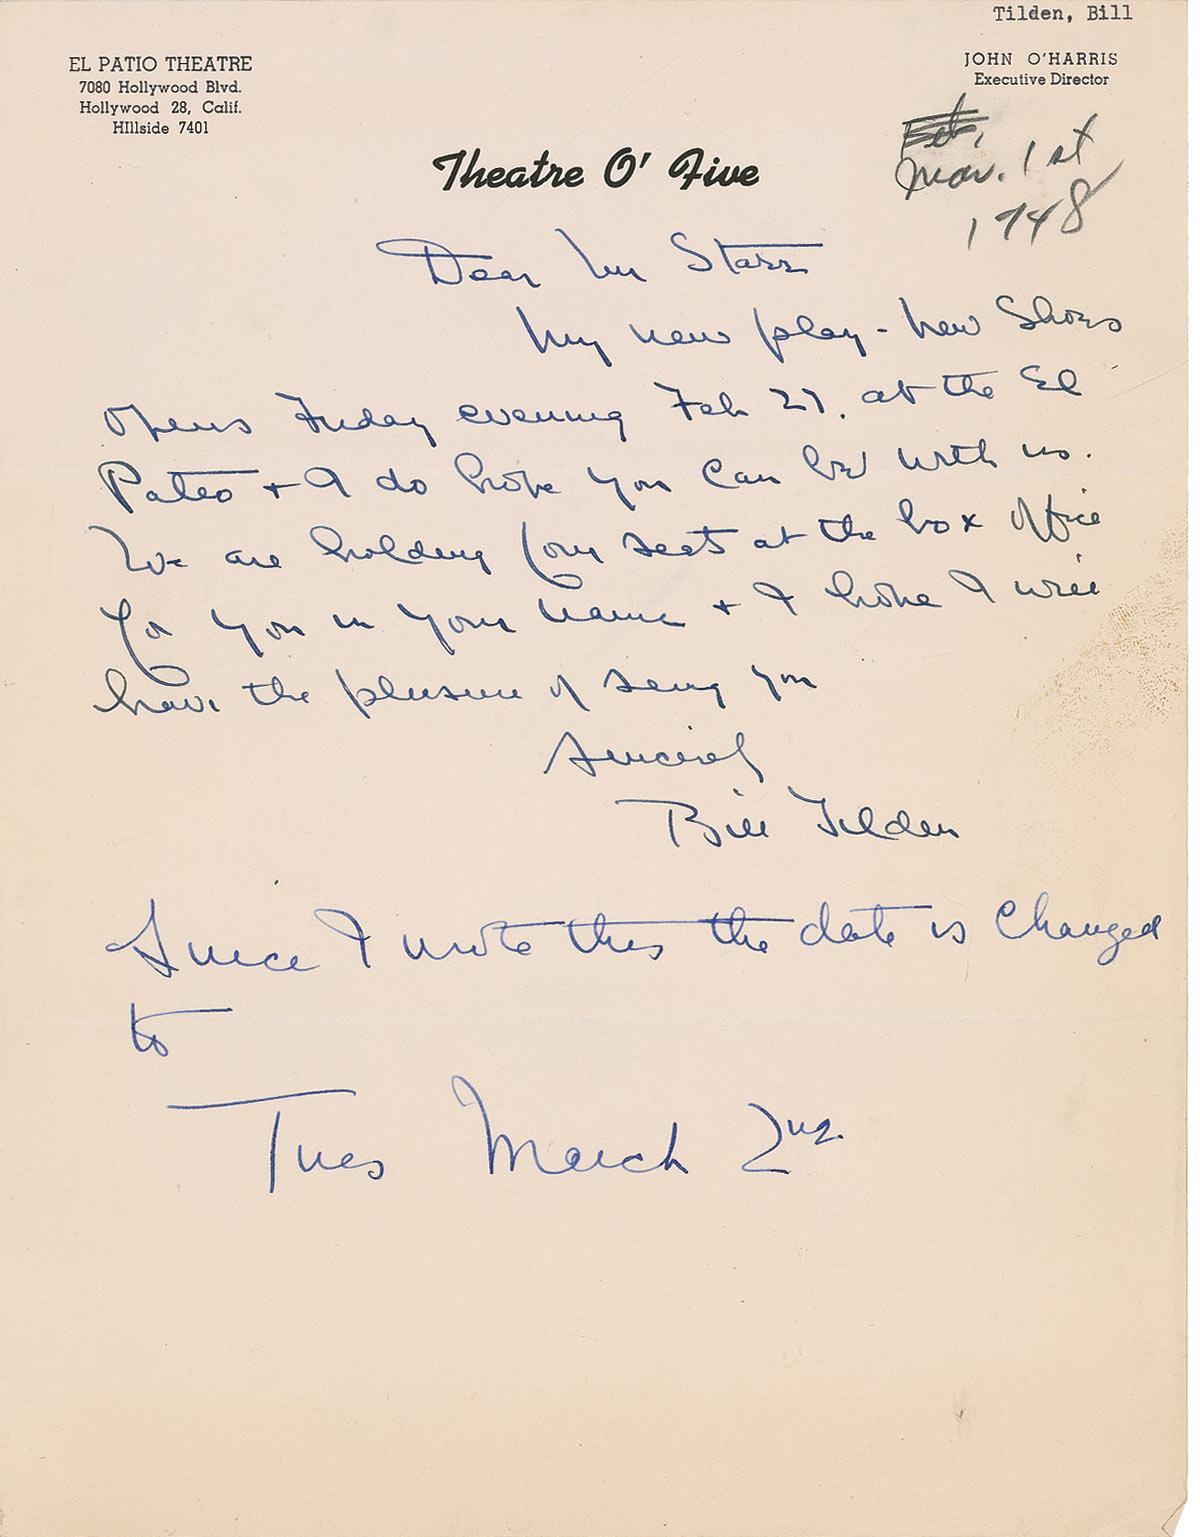 Tilden, Bill
EL PATIO THEATRE
7080 Hollywood Blvd.
Hollywood 28, Calif.
HIllside 7401
JOHN O'HARRIS
Executive Director
Theatre O' Five
Feb.
Mar. 1st
1948
Dear Mr Starr
My new play - New Shoes
opens Friday evening Feb 27. at the El
Patio + I do hope you can be with us.
We are holding four seats at the box office
for you in your name + I hope I will
have the plesure of seing you
Sincerely
Bill Tilden
Since I wrote this the date is changed
to
Tues March 2nd.